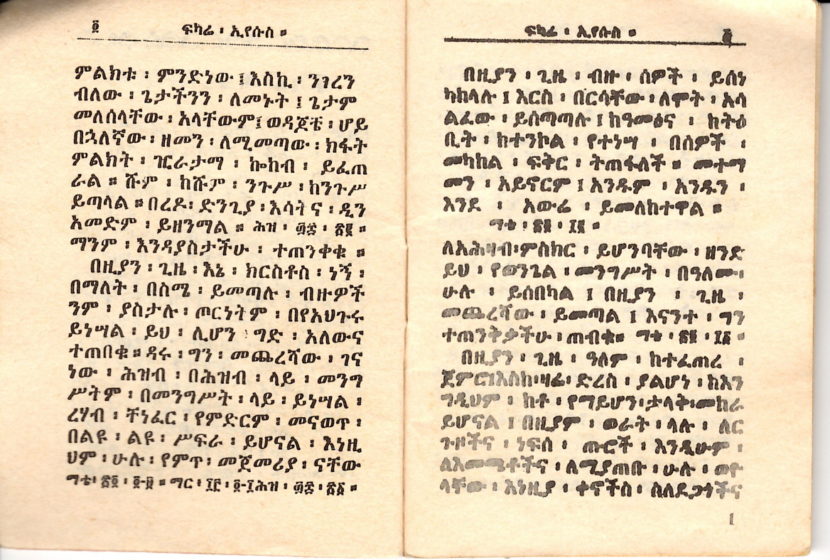 ፬ ፍካሬ ፡ ኢየሱስ ።
ምልክቱ ፡ ምንድነው ፤ እስኪ ፡ ንገረን
ብለው ፡ ጌታችንን ፡ ለመኑት ፤ ጌታም
መለሰላቸው ፡ አላቸውም ፤ ወዳጆቼ ፡ ሆይ
በኋለኛው ፡ ዘመን ፡ ለሚመጣው ፡ ክፋት
ምልክት ፡ ገርራታማ ፡ ኰከብ ፡ ይፈጠ
ራል ። ሹም ፡ ከሹም ፡ ንጉሥ ፡ ከንጉሥ
ይጣላል ። በረዶ ፡ ድንጊያ ፡ እሳትና ፡ ዲን
አመድም ፡ ይዘንማል ።
ማንም ፡ እንዳያስታችሁ ፡ ተጠንቀቁ ።
በዚያን ፡ ጊዜ ፡ እኔ ፡ ክርስቶስ ፡ ነኝ ፡
በማለት ፡ በስሜ ፡ ይመጣሉ ፡ ብዙዎች
ንም ፡ ያስታሉ ፡ ጦርነትም ፡ በየአህጉሩ
ይነሣል ፡ ይህ ፡ ሊሆን ፡ ግድ ፡ አለውና
ተጠበቁ ። ዳሩ ፡ ግን ፡ መጨረሻው ፡ ገና
ነው ፡ ሕዝብ ፡ በሕዝብ ፡ ላይ ፡ መንግ
ሥትም ፡ በመንግሥት ፡ ላይ ፡ ይነሣል ፡
ረሃብ ፡ ቸነፈር ፡ የምድርም ፡ መናወጥ ፡
በልዩ ፡ ልዩ ፡ ሥፍራ ፡ ይሆናል ፡ እነዚ
ህም ፡ ሁሉ ፡ የምጥ ፡ መጀመሪያ ፡ ናቸው
ፍካሬ ፡ ኢየሱስ ። ፭
በዚያን ፡ ጊዜ ፡ ብዙ ፡ ሰዎች ፡ ይሰነ
ካከላሉ ፤ እርስ ፡ በርሳቸው ፡ ለሞት ፡ አሳ
ልፈው ፡ ይሰጣጣሉ ፤ ከዓመፅና ፡ ከትዕ
ቢት ፡ ከተንኮል ፡ የተነሣ ፡ በሰዎች ፡
መካከል ፡ ፍቅር ፡ ትጠፋለች ። መተማ
መን ፡ አይኖርም ፤ አንዱም ፡ አንዱን ፡
እንደ ፡ አውሬ ፡ ይመለከተዋል ።
ማቴ ፡ ፳፬ ፡ ፲፪ ።
ለአሕዛብ ፡ ምስክር ፡ ይሆንባቸው ፡ ዘንድ
ይህ ፡ የወንጌል ፡ መንግሥት ፡ በዓለሙ ፡
ሁሉ ፡ ይሰበካል ፤ በዚያን ፡ ጊዜ ፡
መጨረሻው ፡ ይመጣል ፤ እናንተ ፡ ግን
ተጠንቅታችሁ ፡ ጠብቁ ። ማቴ ፡ ፳፬ ፡ ፲፬ ።
በዚያን ፡ ጊዜ ፡ ዓለም ፡ ከተፈጠረ ፡
ጀምሮ ፡ እስከ ፡ ዛሬ ፡ ድረስ ፡ ያልሆነ ፡ ከእን
ግዲህም ፡ ከቶ ፡ የማይሆን ፡ ታላቅ ፡ መከራ
ይሆናል ፤ በዚያም ፡ ወራት ፡ ላሉ ፡ ለር
ጉዞችና ፡ ነፍሰ ፡ ጡሮች ፡ እንዲሁም ፡
ለእመጫቶችና ፡ ለሚያጠቡ ፡ ሁሉ ፡ ወዮ
ላቸው ፡ እነዚያ ፡ ቀኖችስ ፡ ስለደጋጎችና